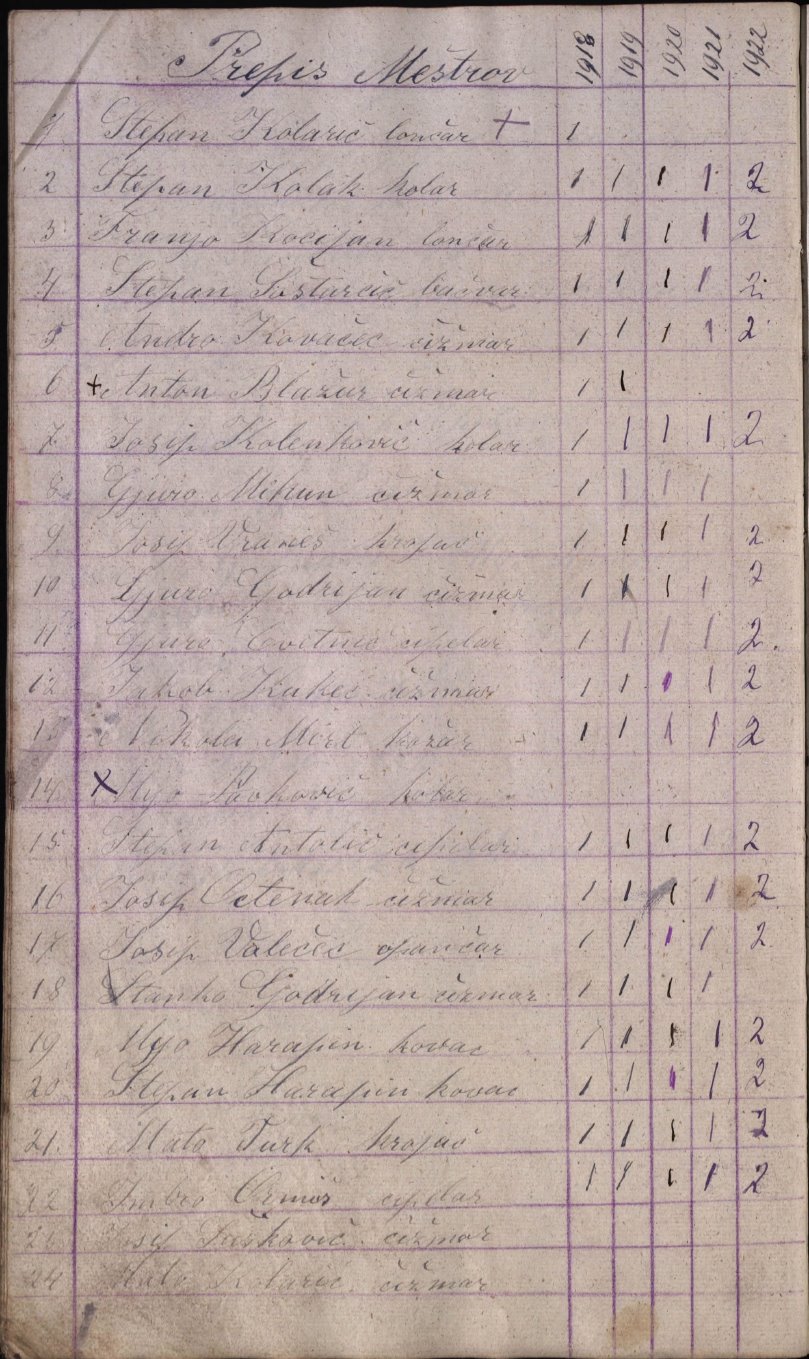 Prepis Meštrov 1918 1919 1920 1921 1922
1 Stepan Kolarič lončar + 1
2 Stepan Kolak kolar 1 1 1 1 2
3 Franjo Kocijan lončar 1 1 1 1 2
4 Stepan Šoštarčič bačvar 1 1 1 1 2
5 Andro Kovačec čižmar 1 1 1 1 2
6 + Anton Blažur čižmar 1 1
7 Josip Kolenković kolar 1 1 1 1 2
8 Gjuro Mikun čižmar 1 1 1 1
9 Josip Vraneš krojač 1 1 1 1 2
10 Gjuro Godrijan čižmar 1 1 1 1 2
11 Gjuro Cvetnić cipelar 1 1 1 1 2
12 Jakob Kukec čižmar 1 1 1 1 2
13 Nikola Mirt kožar 1 1 1 1 2
14 x Mijo kolar
15 Stepan Antolič cipelar 1 1 1 1 2
16 Josip čižmar 1 1 1 1 2
17 Josip Valečec opančar 1 1 1 1 2
18 Stanko Godrijan čižmar 1 1 1 1
19 Mijo Harapin kovac 1 1 1 1 2
20 Stepan Harapin kovac 1 1 1 1 2
21 Mato Turk krojač 1 1 1 1 2
22 Imbro cipelar 1 1 1 1 2
23 Josip čižmar
24 Mato Kolarič čižmar